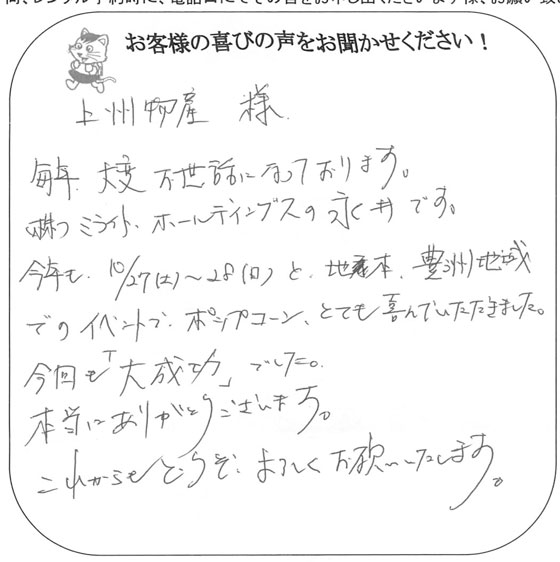 お客様の喜びの声をお聞かせください！
上州物産 様
毎年、大変お世話になっております。
(株)ミライト・ホールディングスの永井です。
今年も、10/27(土)〜28(日)と、地元本、豊洲地域
でのイベントで、ポップコーン、とても喜んでいただきました。
今回も「大成功」でした。
本当にありがとうございます。
これからもどうぞ、よろしくお願いいたします。